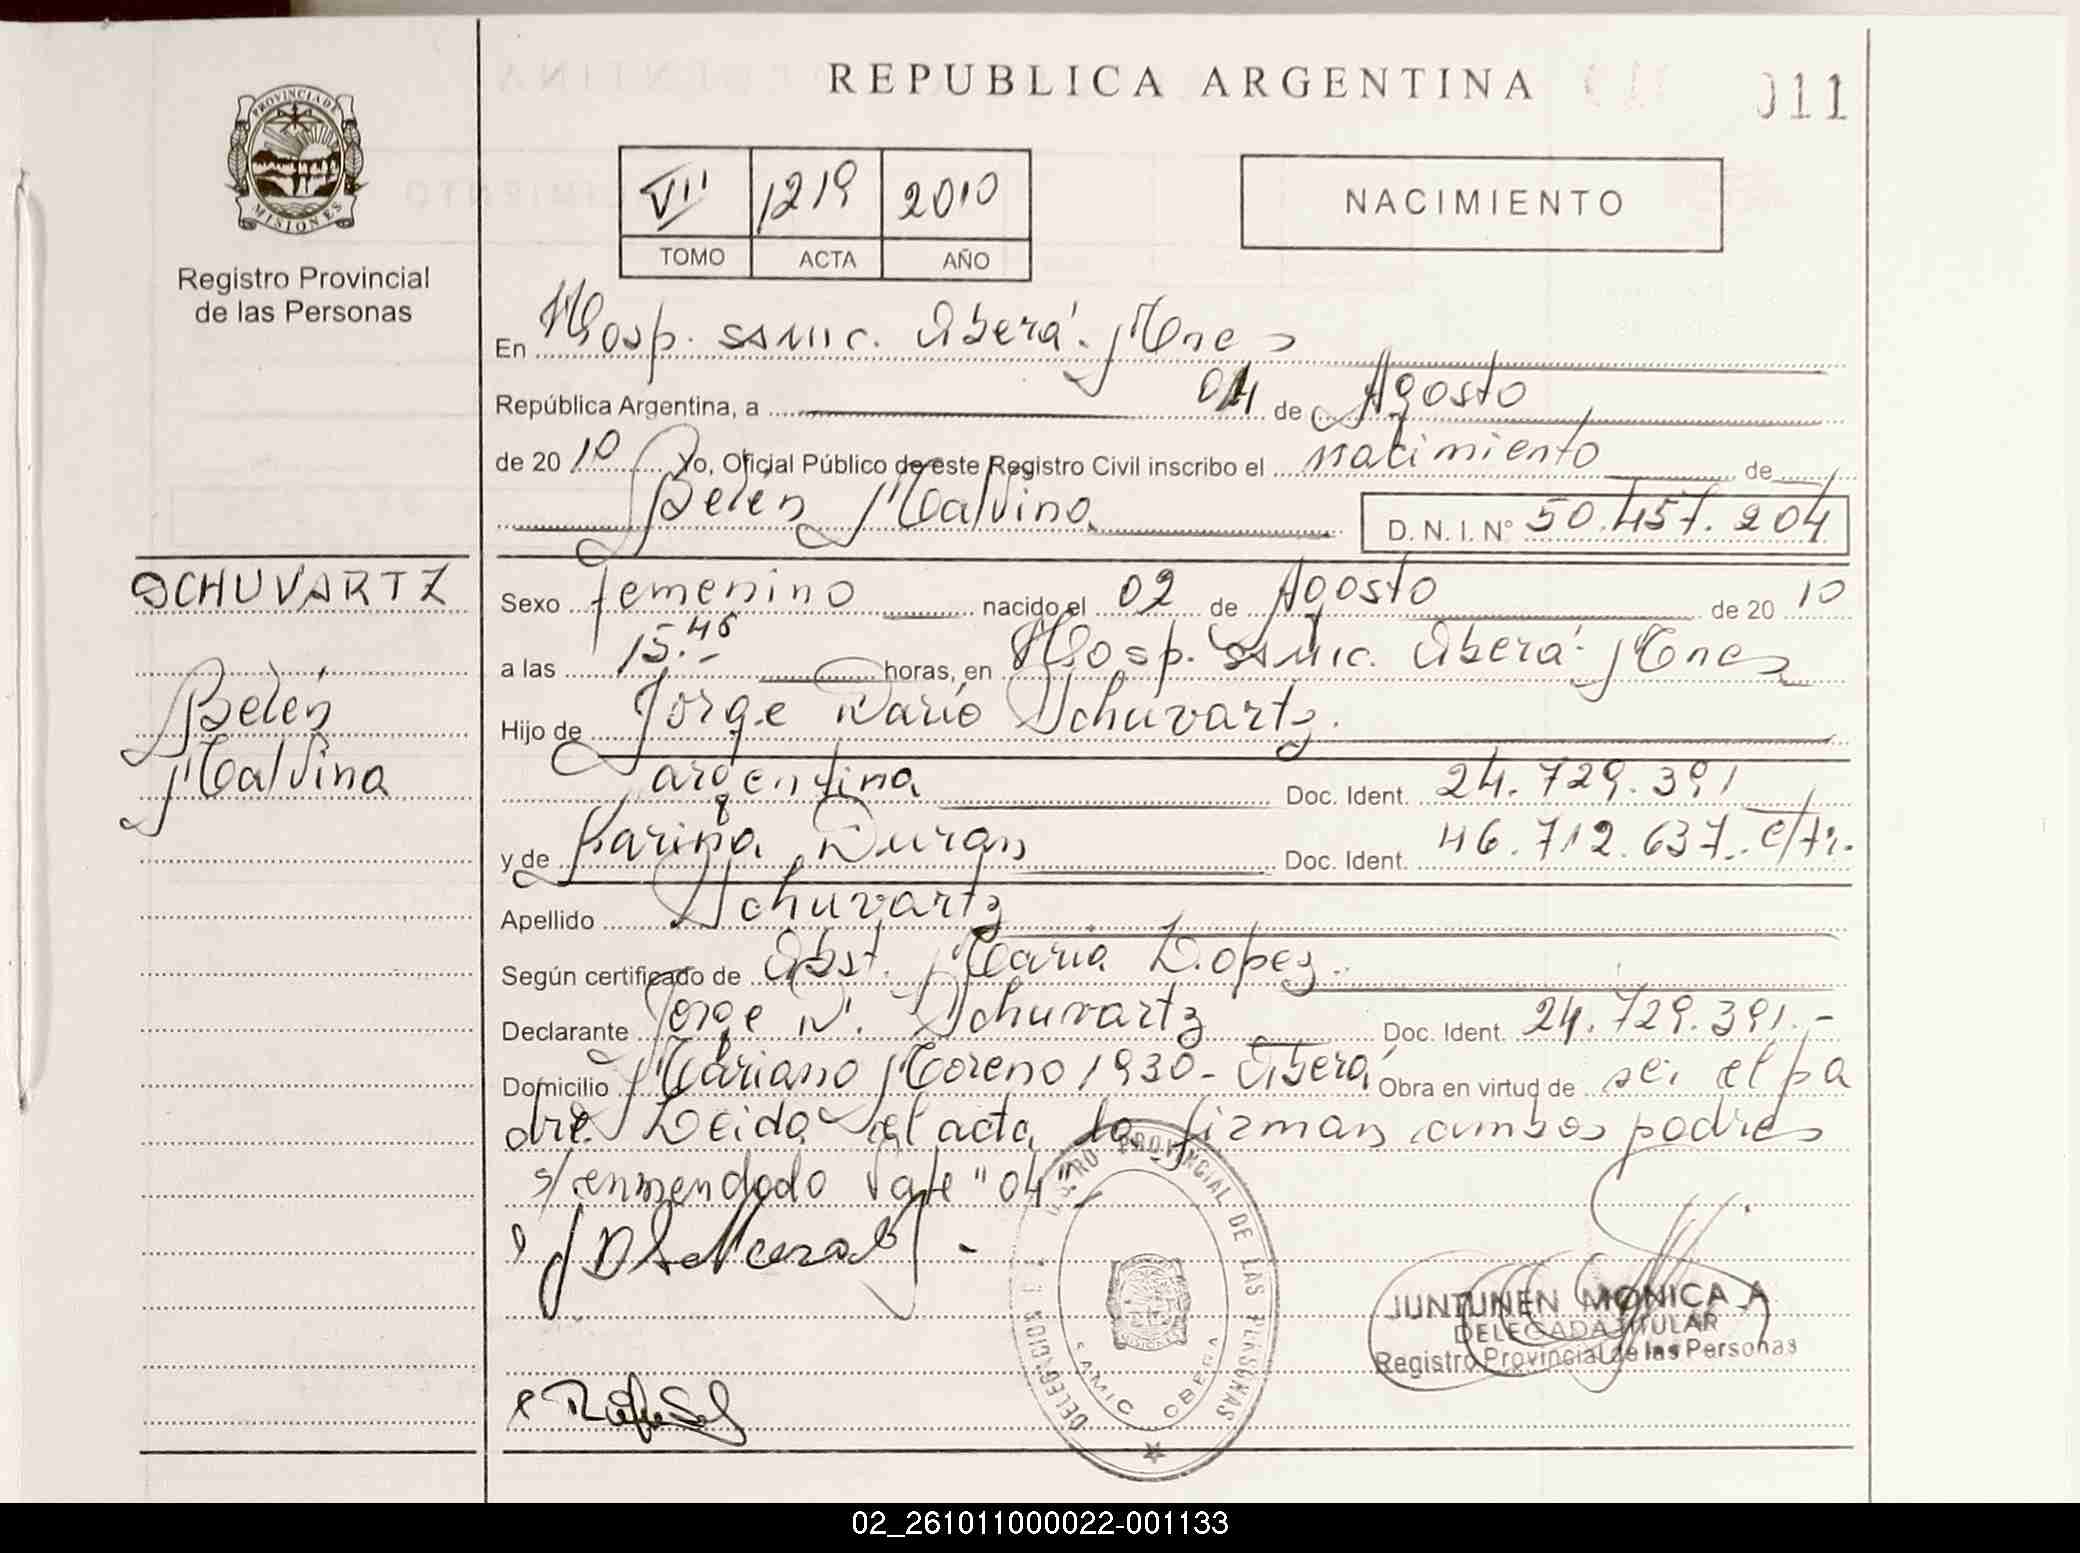 REPUBLICA ARGENTINA
011
PROVINCIA DE
MISIONES
Registro Provincial
de las Personas
VII 1219 2010
TOMO ACTA AÑO
NACIMIENTO
En Hosp. SAMIC. Oberá. Mnes
República Argentina, a 04 de Agosto
de 20 10 Yo, Oficial Público de este Registro Civil inscribo el nacimiento de
Belén Malvina D. N. I. Nº 50.457.204
SCHUVARTZ
Belén
Malvina
Sexo femenino nacido el 02 de Agosto de 20 10
a las 15.45 horas, en Hosp. SAMIC. Oberá. Mnes
Hijo de Jorge Dario Schuvartz.
argentina Doc. Ident. 24.729.391
y de Karina Duran Doc. Ident. 46.712.637. c/tr.
Apellido Schuvartz
Según certificado de Obst. Maria Lopez.
Declarante Jorge D. Schuvartz Doc. Ident. 24.729.391.-
Domicilio Mariano Moreno 1930- Oberá Obra en virtud de ser el pa
dre. Leida el acta la firman ambos padres
s/enmendado Vale "04"
REGISTRO PROVINCIAL DE LAS PERSONAS
DELEGACION
SAMIC OBERA
JUNTUNEN MONICA A
DELEGADA TITULAR
Registro Provincial de las Personas
02_261011000022-001133